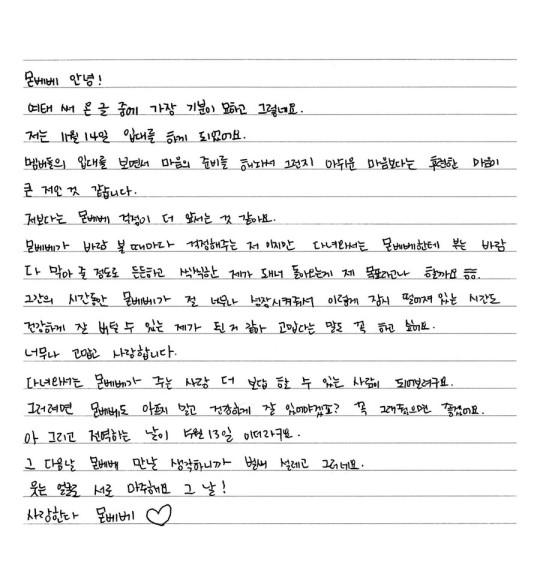 몬베베 안녕!
여태 써 온 글 중에 가장 기분이 묘하고 그렇네요.
저는 11월 14일 입대를 하게 되었어요.
멤버들의 입대를 보면서 마음의 준비를 해놔서 그런지 아쉬운 마음보다는 후련한 마음이
큰 저인 것 같습니다.
저보다는 몬베베 걱정이 더 앞서는 것 같아요.
몬베베가 바람 불 때마다 걱정해주는 저 이지만 다녀와서는 몬베베한테 부는 바람
다 막아 줄 정도로 든든하고 씩씩한 제가 돼서 돌아오는게 제 목표라고나 할까요 ㅎㅎ.
그간의 시간동안 몬베베가 절 너무나 성장시켜줘서 이렇게 잠시 떨어져 있는 시간도
건강하게 잘 버틸 수 있는 제가 된 거 같아 고맙다는 말도 꼭 하고 싶어요.
너무나 고맙고 사랑합니다.
다녀와서는 몬베베가 주는 사랑 더 보답 할 수 있는 사람이 되어보려구요.
그러려면 몬베베도 아프지 말고 건강하게 잘 있어야겠죠? 꼭 그래줬으면 좋겠어요.
아 그리고 전역하는 날이 5월 13일 이더라구요.
그 다음날 몬베베 만날 생각하니까 벌써 설레고 그러네요.
웃는 얼굴로 서로 마주해요 그 날!
사랑한다 몬베베 ♡